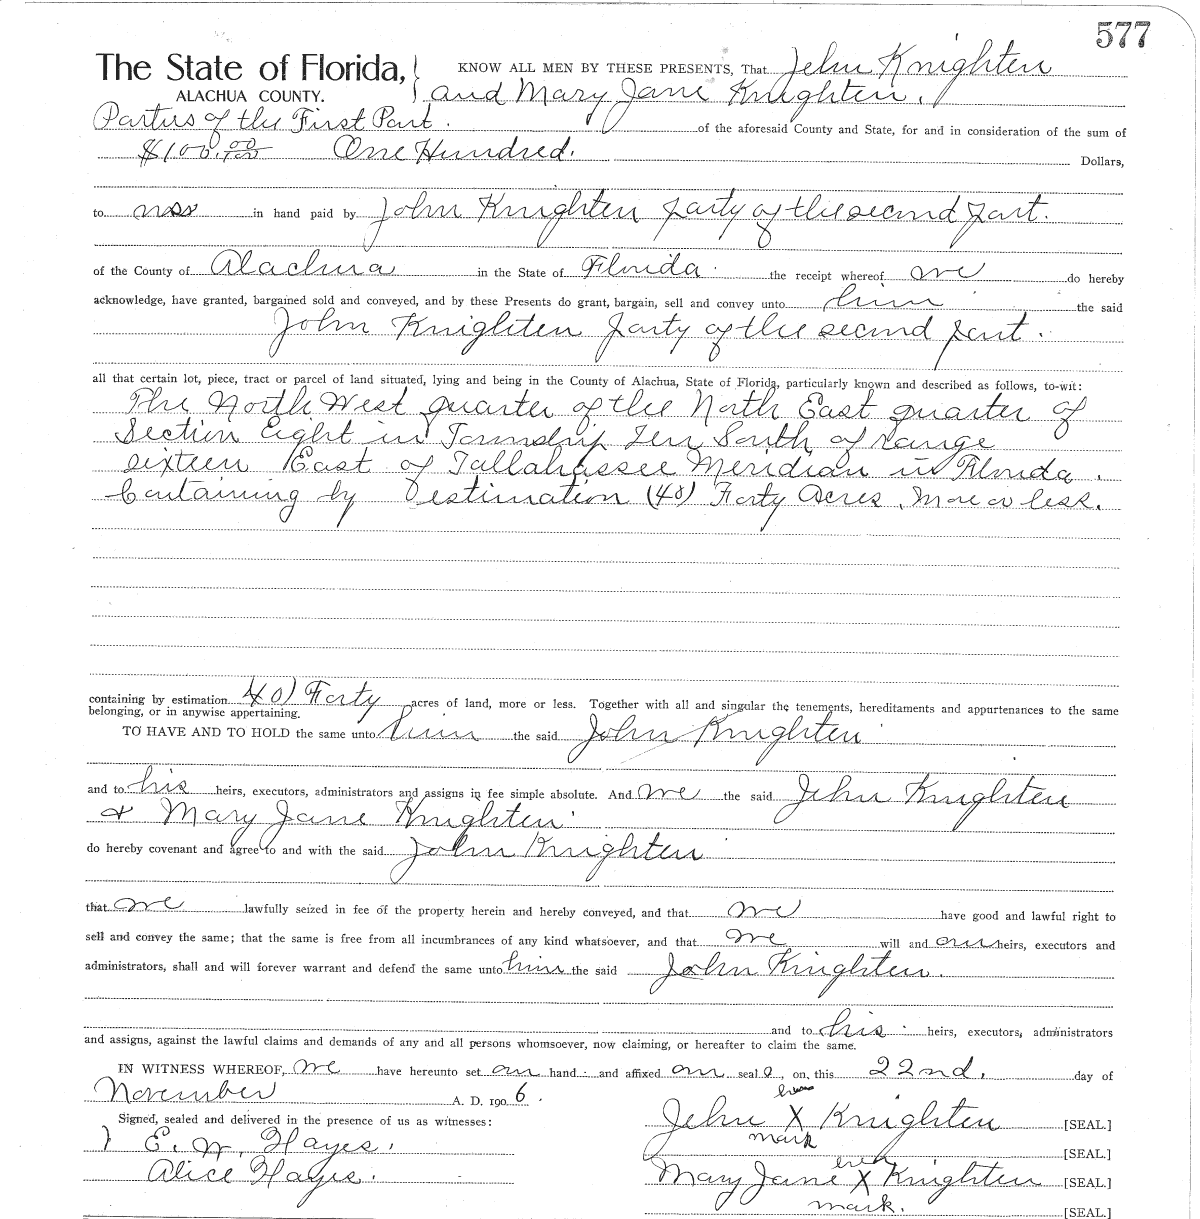 577
The State of Florida,
ALACHUA COUNTY.
KNOW ALL MEN BY THESE PRESENTS, That Jehu Knighten
and Mary Jane Knighten.
Parties of the First Part.
of the aforesaid County and State, for and in consideration of the sum of
$100.00/100 One Hundred. Dollars,
to us in hand paid by John Knighten party of the second part.
of the County of Alachua in the State of Florida. the receipt whereof we do hereby
acknowledge, have granted, bargained sold and conveyed, and by these Presents do grant, bargain, sell and convey unto him the said
John Knighten party of the second part.
all that certain lot, piece, tract or parcel of land situated, lying and being in the County of Alachua, State of Florida, particularly known and described as follows, to-wit:
The North West quarter of the North East quarter of
Section Eight in Township Ten South of range
sixteen East of Tallahassee Meridian in Florida.
Containing by estimation (40) Forty Acres, More or less.
containing by estimation 40) Forty acres of land, more or less. Together with all and singular the tenements, hereditaments and appurtenances to the same
belonging, or in anywise appertaining.
TO HAVE AND TO HOLD the same unto him the said John Knighten
and to his heirs, executors, administrators and assigns in fee simple absolute. And we the said Jehu Knighten
& Mary Jane Knighten
do hereby covenant and agree to and with the said John Knighten
that we lawfully seized in fee of the property herein and hereby conveyed, and that we have good and lawful right to
sell and convey the same; that the same is free from all incumbrances of any kind whatsoever, and that we will and our heirs, executors and
administrators, shall and will forever warrant and defend the same unto him the said John Knighten.
and to his heirs, executors, administrators
and assigns, against the lawful claims and demands of any and all persons whomsoever, now claiming, or hereafter to claim the same.
IN WITNESS WHEREOF, we have hereunto set our hand and affixed our seal s, on this 22nd. day of
November A. D. 190 6.
Signed, sealed and delivered in the presence of us as witnesses:
E. W. Hayes.
Alice Hayes.
his
Jehu X Knighten [SEAL.]
mark
[SEAL.]
her
Mary Jane X Knighten [SEAL.]
mark.
[SEAL.]